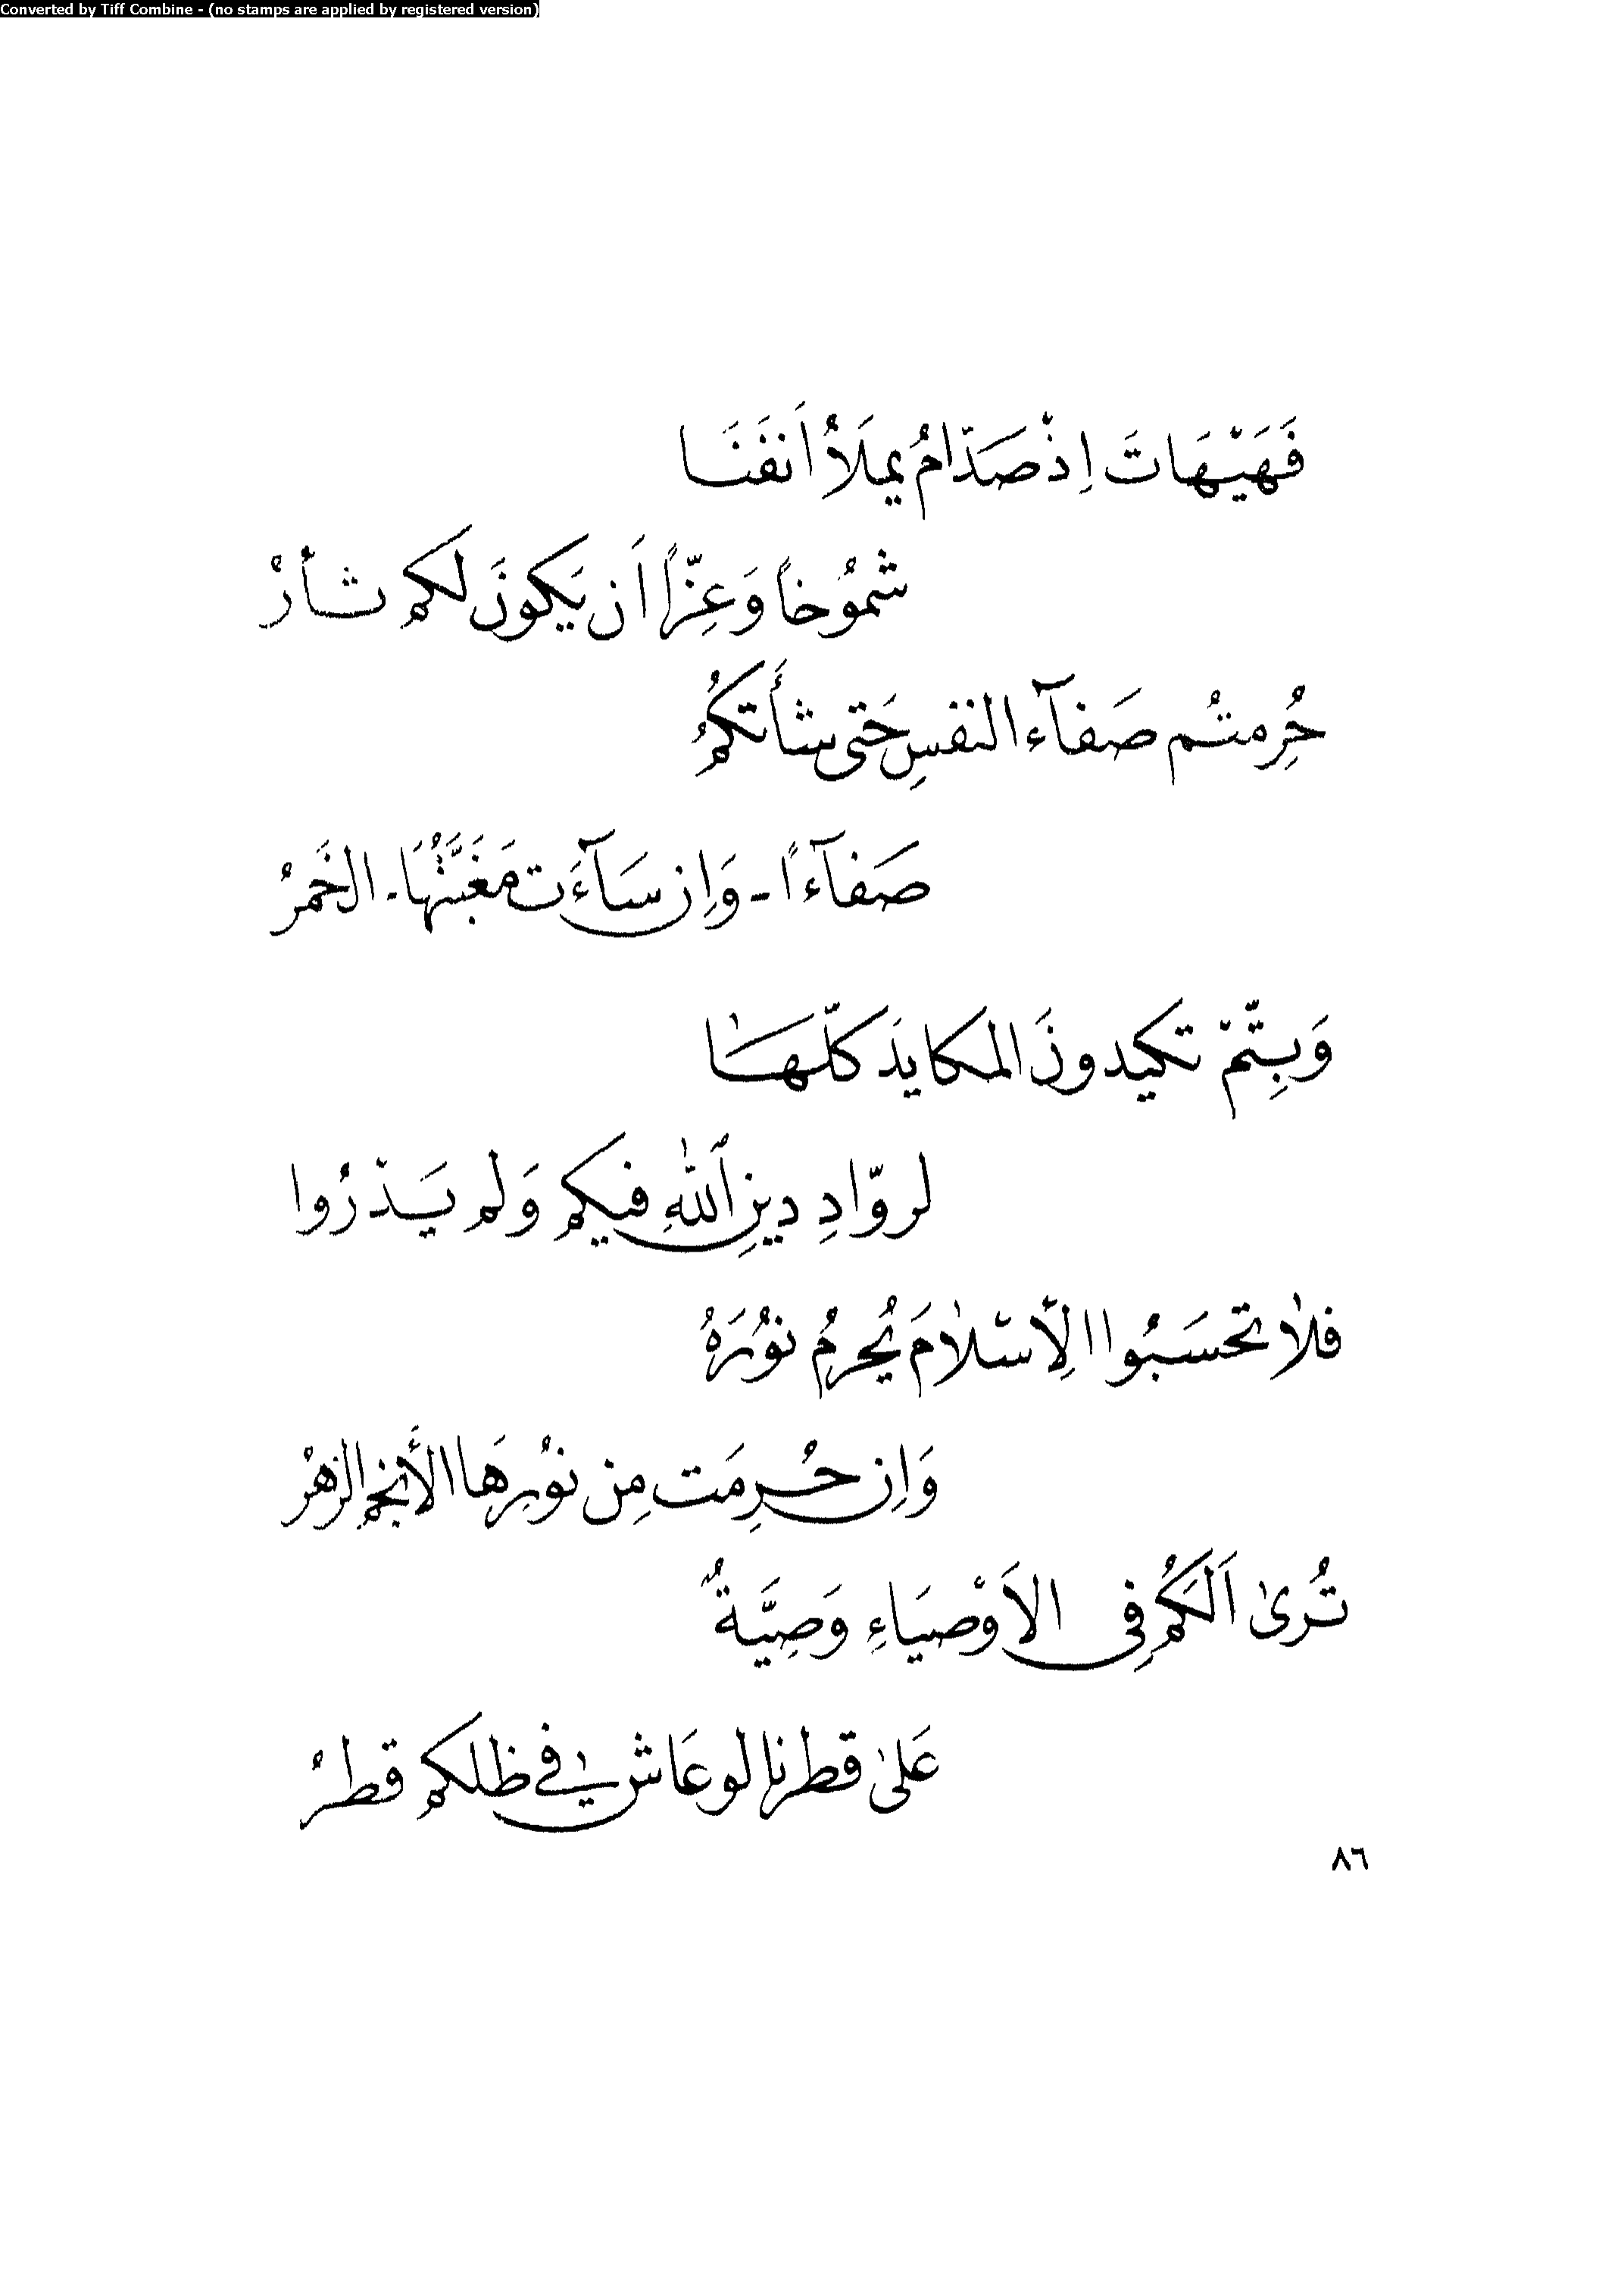 Converted by Tiff Combine - (no stamps are applied by registered version)
فَهَيْهَاتَ اِذْ صَدّامُ يملَأُ اَنفَنَا
شموُخاً وَعِزّاً اَن يَكونَ لَكم ثأرْ
حُرِمتُم صَفآء النفسِ حَتى شأَتكمُ
صَفآءاً - وَاِن سَآءَت مَغَبَّتُهَا - الخَمرُ
وَبِتّمْ تكيدونَ المكايدَ كلّهَا
لروّادِ دينِ ٱللّٰهِ فيكم وَلم يَذْرُوا
فلا تحسَبُوا الِأسْلامَ يُحرمُ نوُرَهُ
وَاِن حُرِمَت مِن نوُرِهَا الأَنجم الزهْر
تُرىٰ اَلَكمُ فِى الاَوْصيَاءِ وَصِيَّةٌ
عَلىٰ قطرنا لو عَاش في ظلكم قطرُ
٨٦